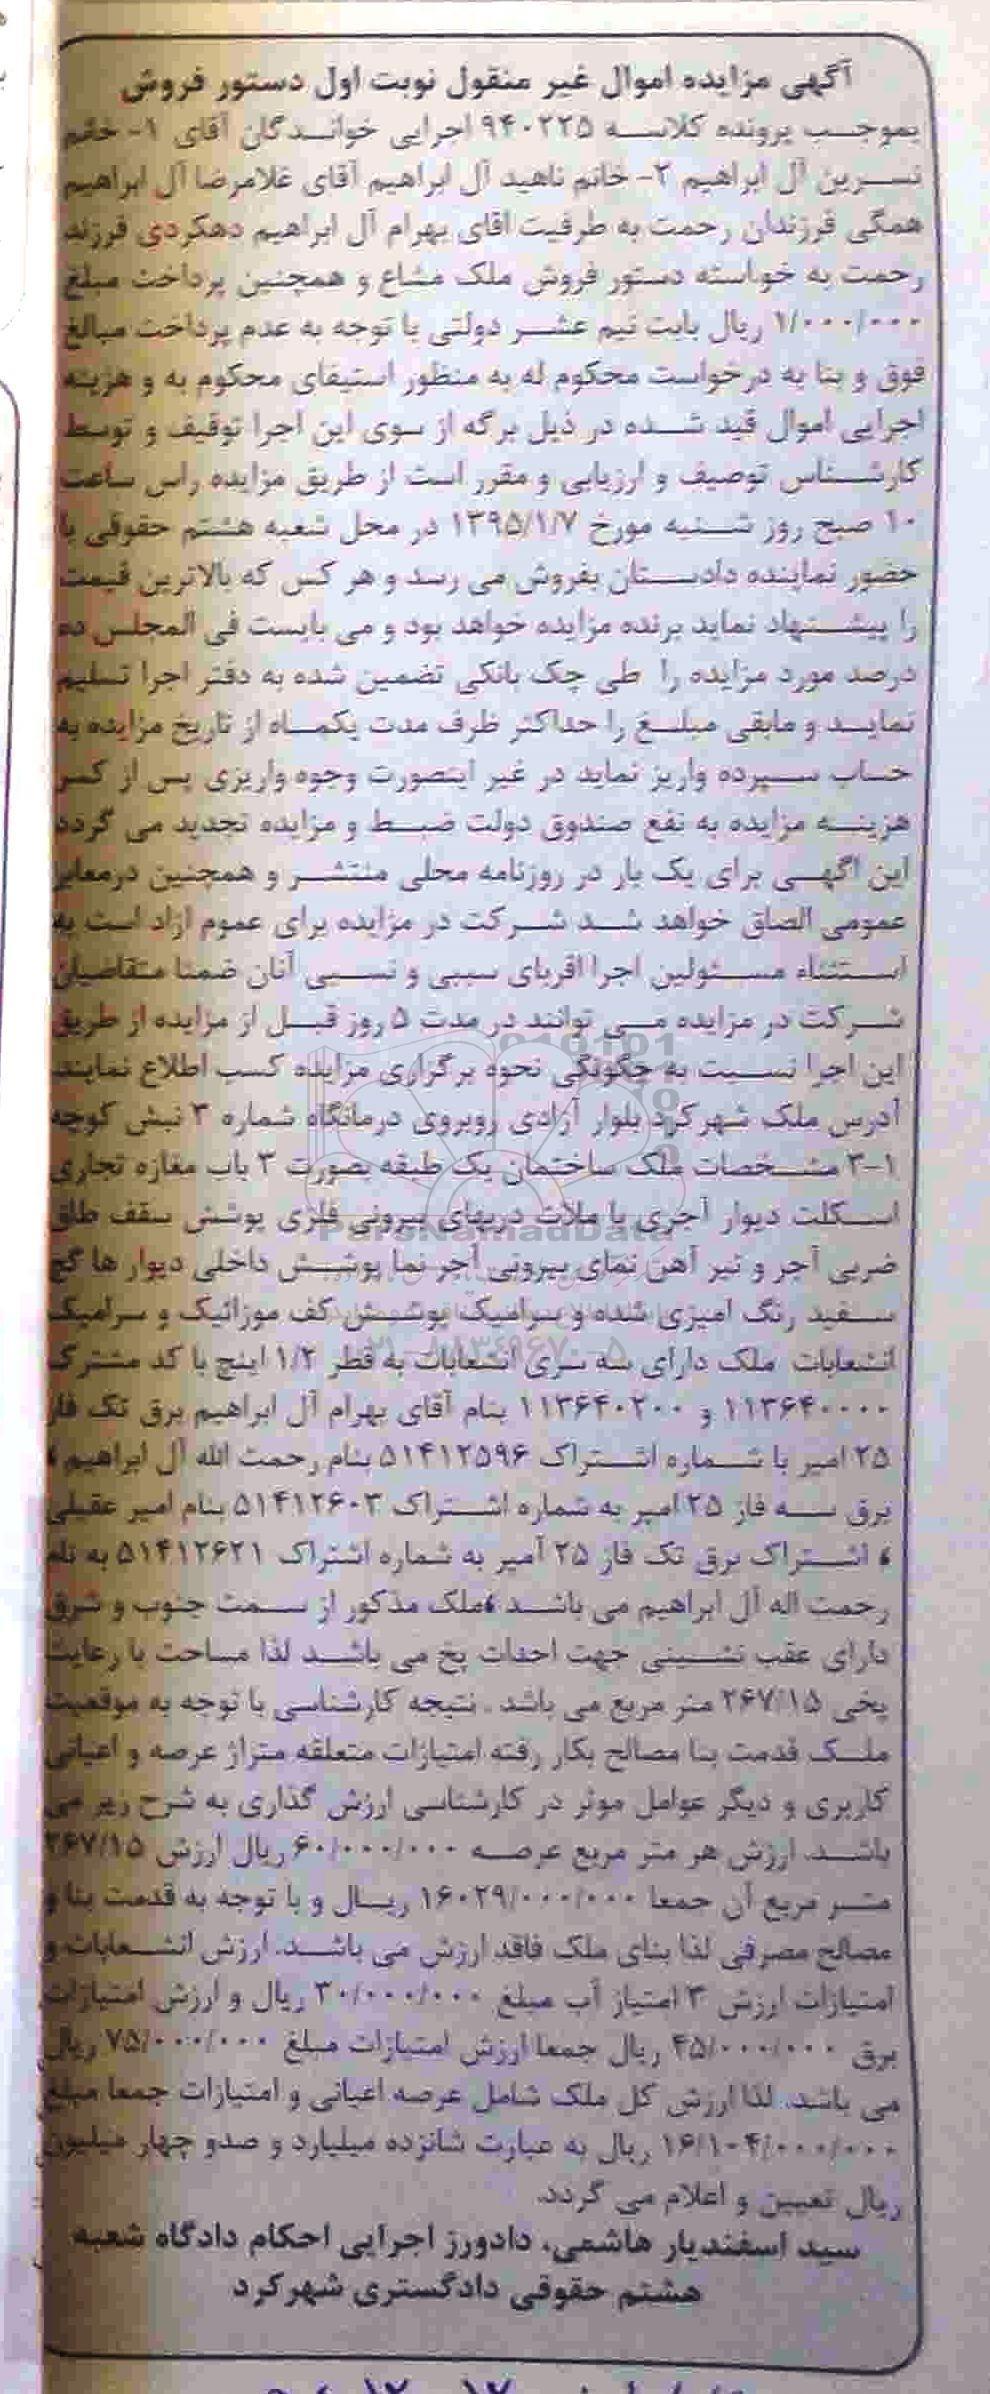 آگهی مزایده اموال غیر منقول نوبت اول دستور فروش
بموجب پرونده کلاسه ۹۴۰۲۲۵ اجرایی خواندگان آقای ۱- خانم
نسرین آل ابراهیم ۲- خانم ناهید آل ابراهیم آقای غلامرضا آل ابراهیم
همگی فرزندان رحمت به طرفیت اقای بهرام آل ابراهیم دهکردی فرزند
رحمت به خواسته دستور فروش ملک مشاع و همچنین پرداخت مبلغ
۱/۰۰۰/۰۰۰ ریال بابت نیم عشر دولتی با توجه به عدم پرداخت مبالغ
فوق و بنا به درخواست محکوم له به منظور استیفای محکوم به و هزینه
اجرایی اموال قید شده در ذیل برگه از سوی این اجرا توقیف و توسط
کارشناس توصیف و ارزیابی و مقرر است از طریق مزایده راس ساعت
۱۰ صبح روز شنبه مورخ ۱۳۹۵/۱/۷ در محل شعبه هشتم حقوقی با
حضور نماینده دادستان بفروش می رسد و هر کس که بالاترین قیمت
را پیشنهاد نماید برنده مزایده خواهد بود و می بایست فی المجلس ده
درصد مورد مزایده را طی چک بانکی تضمین شده به دفتر اجرا تسلیم
نماید و مابقی مبلغ را حداکثر ظرف مدت یکماه از تاریخ مزایده به
حساب سپرده واریز نماید در غیر اینصورت وجوه واریزی پس از کسر
هزینه مزایده به نفع صندوق دولت ضبط و مزایده تجدید می گردد
این اگهی برای یک بار در روزنامه محلی منتشر و همچنین درمعابر
عمومی الصاق خواهد شد شرکت در مزایده برای عموم ازاد است به
استثناء مسئولین اجرا اقربای سببی و نسبی آنان ضمنا متقاضیان
شرکت در مزایده می توانند در مدت ۵ روز قبل از مزایده از طریق
این اجرا نسبت به چگونگی نحوه برگزاری مزایده کسب اطلاع نمایند
آدرس ملک شهرکرد بلوار آزادی روبروی درمانگاه شماره ۳ نبش کوچه
۳-۱ مشخصات ملک ساختمان یک طبقه بصورت ۳ باب مغازه تجاری
اسکلت دیوار آجری با ملات دربهای بیرونی فلزی پوشش سقف طاق
ضربی آجر و تیر آهن نمای بیرونی آجر نما پوشش داخلی دیوار ها گچ
سفید رنگ امیزی شده و سرامیک پوشش کف موزائیک و سرامیک
انشعابات ملک دارای سه سری انشعابات به قطر ۱/۲ اینچ با کد مشترک
۱۱۳۶۴۰۰۰۰ و ۱۱۳۶۴۰۲۰۰ بنام آقای بهرام آل ابراهیم برق تک فاز
۲۵ امپر با شماره اشتراک ۵۱۴۱۲۵۹۶ بنام رحمت الله آل ابراهیم ،
برق سه فاز ۲۵ امپر به شماره اشتراک ۵۱۴۱۲۶۰۳ بنام امیر عقیلی
، اشتراک برق تک فاز ۲۵ آمپر به شماره اشتراک ۵۱۴۱۲۶۲۱ به نام
رحمت اله آل ابراهیم می باشد ،ملک مذکور از سمت جنوب و شرق
دارای عقب نشینی جهت احداث پخ می باشد لذا مساحت با رعایت
پخی ۲۶۷/۱۵ متر مربع می باشد . نتیجه کارشناسی با توجه به موقعیت
ملک قدمت بنا مصالح بکار رفته امتیازات متعلقه متراژ عرصه و اعیانی
کاربری و دیگر عوامل موثر در کارشناسی ارزش گذاری به شرح زیر می
باشد. ارزش هر متر مربع عرصه ۶۰/۰۰۰/۰۰۰ ریال ارزش ۲۶۷/۱۵
متر مربع آن جمعا ۱۶۰۲۹/۰۰۰/۰۰۰ ریال و با توجه به قدمت بنا و
مصالح مصرفی لذا بنای ملک فاقد ارزش می باشد. ارزش انشعابات و
امتیازات ارزش ۳ امتیاز آب مبلغ ۳۰/۰۰۰/۰۰۰ ریال و ارزش امتیازات
برق ۴۵/۰۰۰/۰۰۰ ریال جمعا ارزش امتیازات مبلغ ۷۵/۰۰۰/۰۰۰ ریال
می باشد. لذا ارزش کل ملک شامل عرصه اعیانی و امتیازات جمعا مبلغ
۱۶/۱۰۴/۰۰۰/۰۰۰ ریال به عبارت شانزده میلیارد و صدو چهار میلیون
ریال تعیین و اعلام می گردد.
سید اسفندیار هاشمی، دادورز اجرایی احکام دادگاه شعبه
هشتم حقوقی دادگستری شهرکرد
ParsNamadData